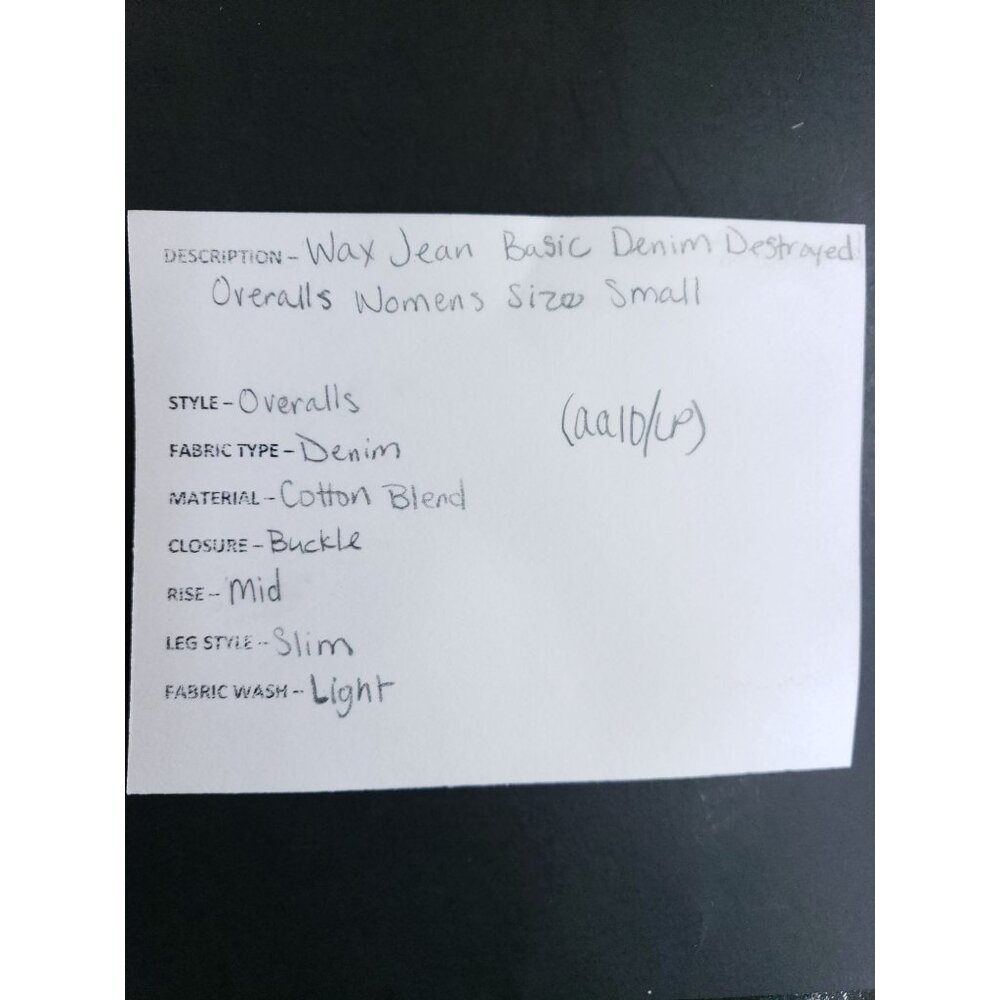 DESCRIPTION - Wax Jean Basic Denim Destroyed
Overalls Womens Size Small
STYLE - Overalls
(aa10/LP)
FABRIC TYPE - Denim
MATERIAL - Cotton Blend
CLOSURE - Buckle
RISE - Mid
LEG STYLE - Slim
FABRIC WASH - Light